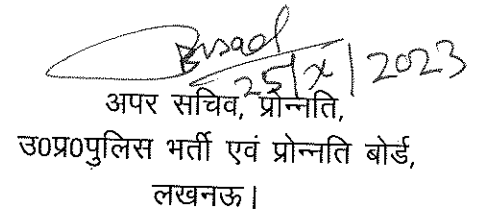 25/X/2023
अपर सचिव, प्रोन्नति,
उ०प्र०पुलिस भर्ती एवं प्रोन्नति बोर्ड,
लखनऊ।